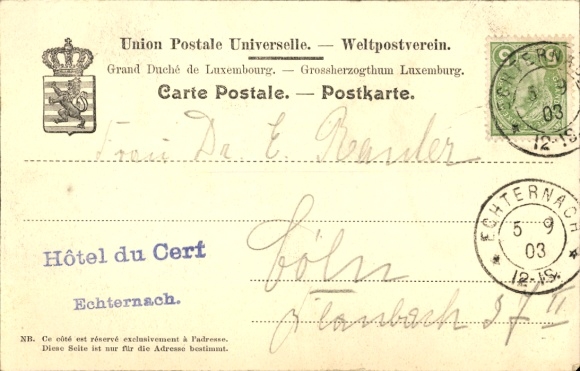 Union Postale Universelle. — Weltpostverein.
Grand Duché de Luxembourg. — Grossherzogthum Luxemburg.
Carte Postale. — Postkarte.
5
ECHTERNACH
5 9
03
12-1S.
Frau Dr. E.
ECHTERNACH
5 9
03
12-1S.
Hôtel du Cerf
Echternach.
Cöln
37 II
NB. Ce côté est réservé exclusivement à l'adresse.
Diese Seite ist nur für die Adresse bestimmt.